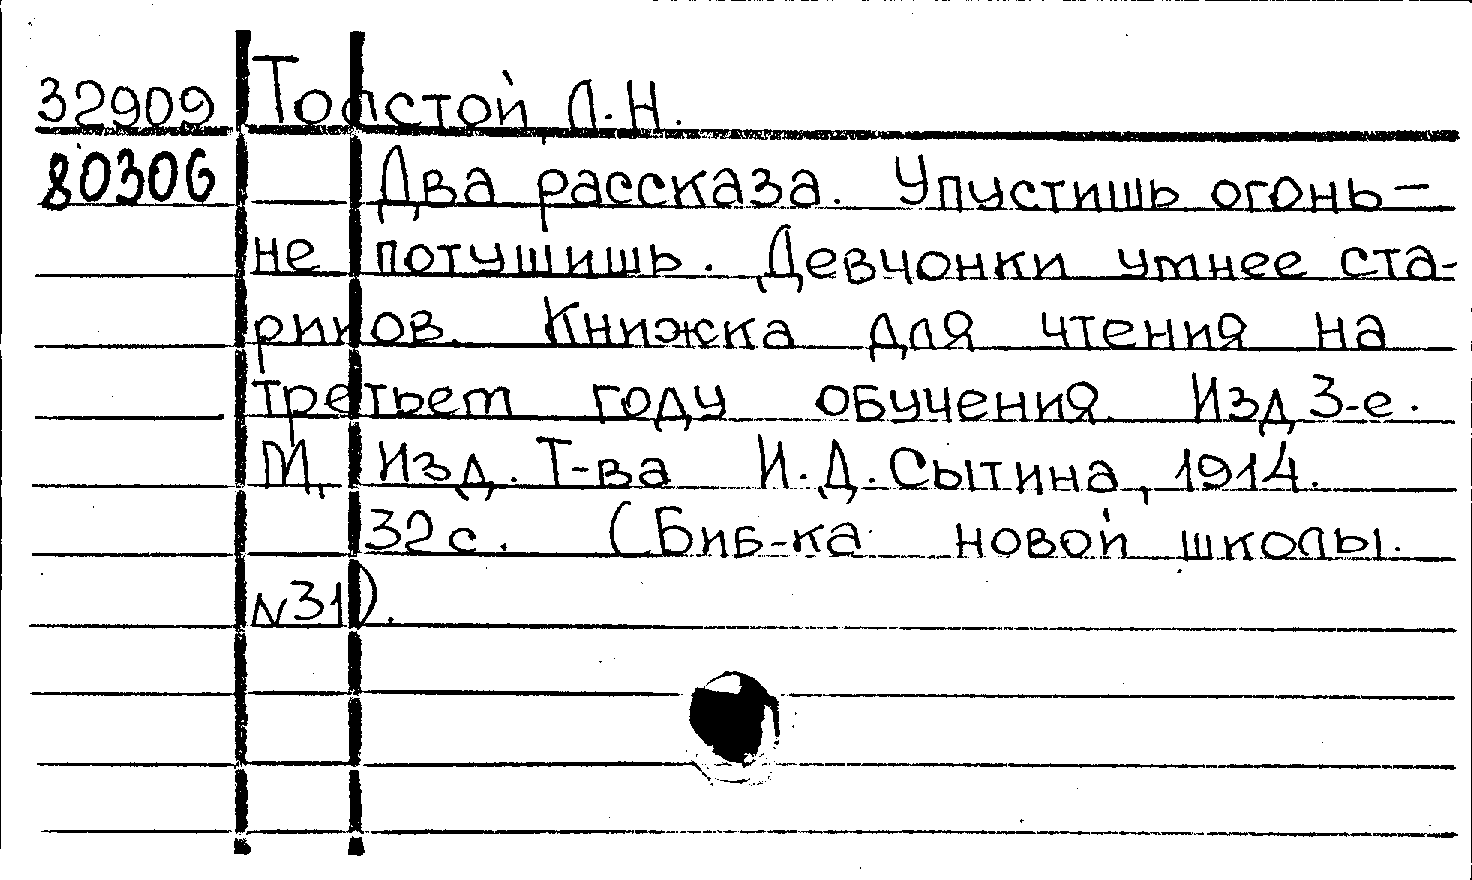 32909 Толстой Л.Н.
80306 Два рассказа. Упустишь огонь –
не потушишь. Девчонки умнее ста-
риков. Книжка для чтения на
третьем году обучения. Изд 3-е.
М., Изд. Т-ва И.Д.Сытина, 1914.
32с. (Биб-ка новой школы.
N31).